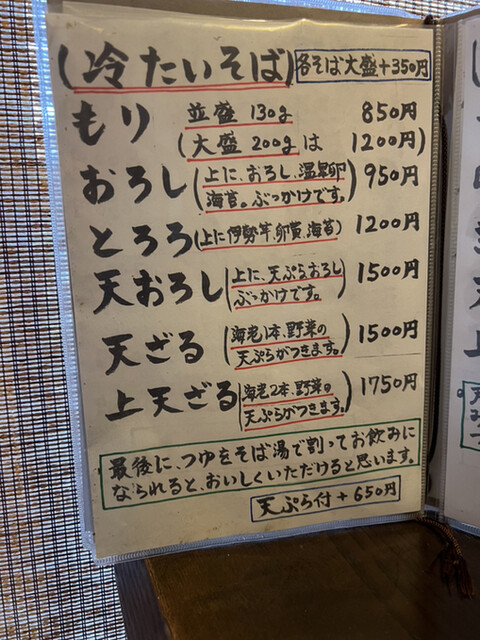 (冷たいそば) 各そば大盛+350円
もり 並盛 130g 850円
(大盛 200g は 1200円)
おろし (上に、おろし、温泉卵 950円
海苔。ぶっかけです。)
とろろ (上に伊勢芋、卵黄、海苔) 1200円
天おろし (上に、天ぷら、おろし 1500円
ぶっかけです。)
天ざる (海老1本、野菜の 1500円
天ぷらがつきます。)
上天ざる (海老2本、野菜の 1750円
天ぷらがつきます。)
最後に、つゆをそば湯で割ってお飲みに
なられると、おいしくいただけると思います。
天ぷら付+650円